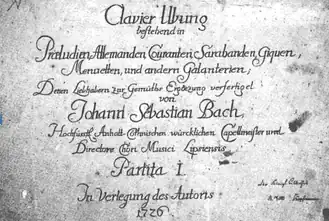 Clavier Ubung
bestehend in
Præludien, Allemanden, Couranten, Sarabanden, Giquen,
Menuetten, und andern Galanterien;
Denen Liebhabern zur Gemüths Ergoezung verfertiget
von
Johann Sebastian Bach,
Hochfürstl. Anhalt-Cöthnischen würcklichen Capellmeister und
Directore Chori Musici Lipsiensis.
Partita I.
In Verlegung des Autoris
1726.